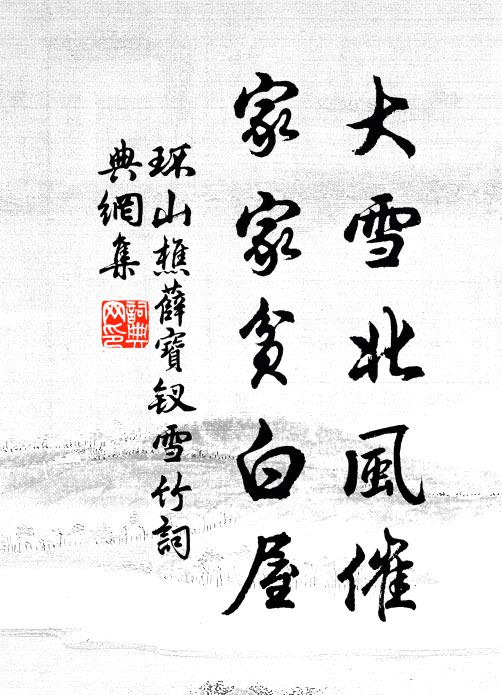 大雪北風催
家家貧白屋
环山樵薛寶釵雪竹詞
典網集
詞典
网印